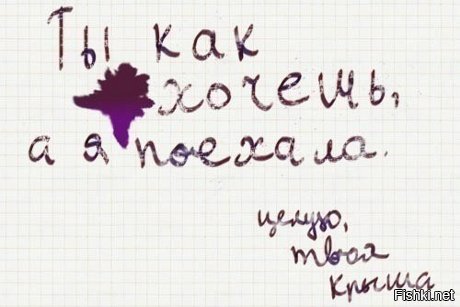 Ты как
хочешь,
а я поехала.
целую,
твоя
крыша
Fishki.net